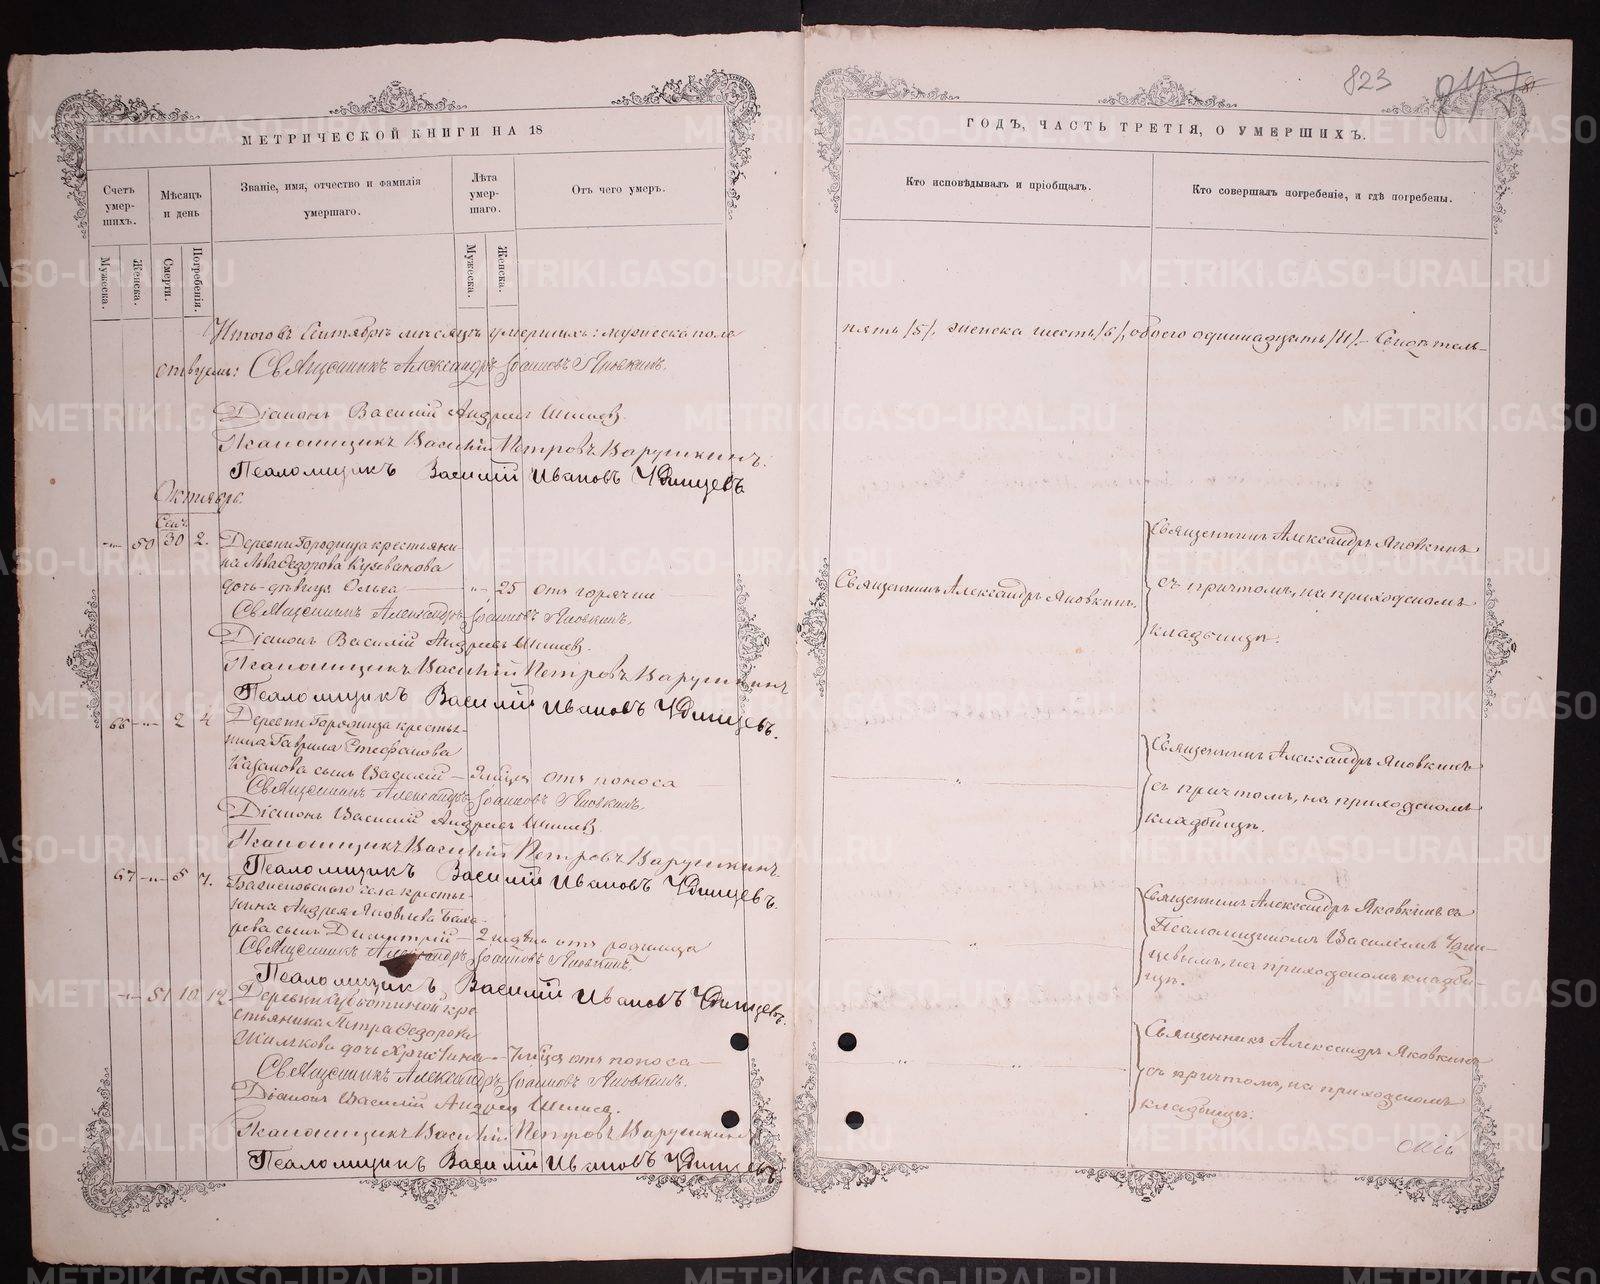 823
МЕТРИЧЕСКОЙ КНИГИ НА 18
ГОДЪ, ЧАСТЬ ТРЕТІЯ, О УМЕРШИХЪ.
Счетъ умер-шихъ.
Мѣсяцъ и день
Званіе, имя, отчество и фамилія умершаго.
Лѣта умер-шаго.
Отъ чего умеръ.
Кто исповѣдывалъ и пріобщалъ.
Кто совершалъ погребеніе, и гдѣ погребены.
Мужеска.
Женска.
Смерти.
Погребенія.
Мужеска.
Женска.
Итого въ Сентябрѣ мѣсяцѣ умершихъ: мужеска пола
пять /5/, женска шесть /6/, обоего одиннадцать /11/. Свидѣтель-
ствуемъ: Священникъ Александръ Іоанновъ Яковкинъ.
Діаконъ Василій Андреевъ Шишевъ.
Псаломщикъ Василій Петровъ Варушкинъ.
Псаломщикъ Василій Ивановъ Удинцевъ
Октябрь.
Сен.
50 30 2. Деревни Городища крестьяни-
на Льва Ѳедорова
дочь-дѣвица Ольга 25 отъ горячки
Священникъ Александръ Яковкинъ.
Священникъ Александръ Яковкинъ
съ причтомъ, на приходскомъ
кладбищѣ.
Священникъ Александръ Іоанновъ Яковкинъ.
Діаконъ Василій Андреевъ Шишевъ.
Псаломщикъ Василій Петровъ Варушкинъ
Псаломщикъ Василій Ивановъ Удинцевъ.
66 2 4 Деревни Городища кресть-
нина Гаврила Стефанова
Казакова сынъ Василій отъ поноса
Священникъ Александръ Яковкинъ
съ причтомъ, на приходскомъ
кладбищѣ.
Священникъ Александръ Іоанновъ Яковкинъ.
Діаконъ Василій Андреевъ Шишевъ.
Псаломщикъ Василій Петровъ Варушкинъ
Псаломщикъ Василій Ивановъ Удинцевъ.
67 5 7. села кресть-
нина Андрея Яковлева
сынъ Димитрій 2 недѣль отъ родимца
Священникъ Александръ Яковкинъ съ
Псаломщикомъ Василіемъ Удин-
цевымъ, на приходскомъ кладби-
щѣ.
Священникъ Александръ Іоанновъ Яковкинъ.
Псаломщикъ Василій Ивановъ Удинцевъ.
51 10 12 Деревни кре-
стьянина Петра Ѳедорова
дочь отъ поноса
Священникъ Александръ Яковкинъ
съ причтомъ, на приходскомъ
кладбищѣ.
Священникъ Александръ Іоанновъ Яковкинъ.
Діаконъ Василій Андреевъ Шишевъ.
Псаломщикъ Василій Петровъ Варушкинъ
Псаломщикъ Василій Ивановъ Удинцевъ
METRIKI.GASO-URAL.RU